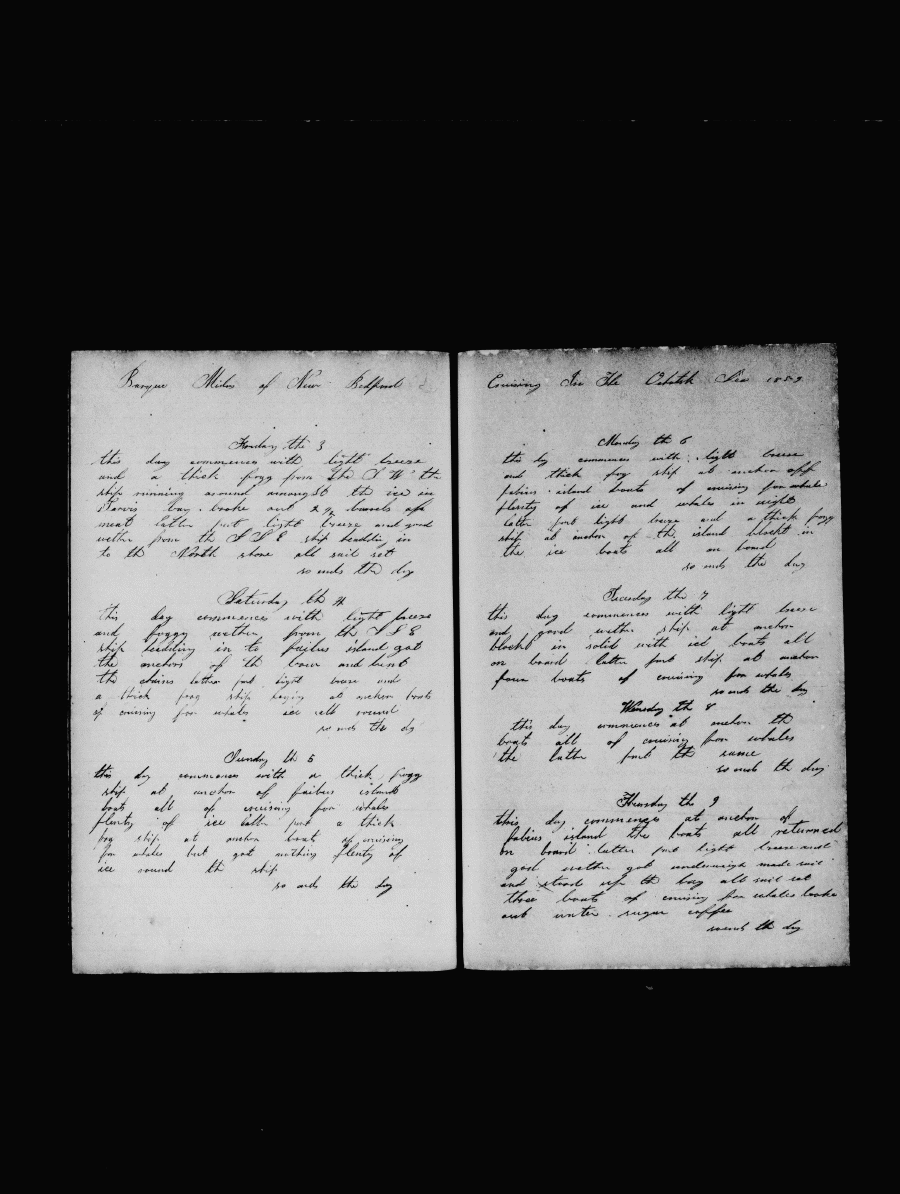 Barque Milo of New Bedford
Fryday the 3
this day commences with light breeze
and a thick fogg from the S W the
ship running around amongst the ice in
Jarvis bay broke out 2 1/2 barrels of
meat latter part light breeze and good
wether from the S S E ship headdin in
to the North shore all sail set
so ends the day
Saturday the 4
this day commences with light breeze
and foggy wether from the S S E
ship hedding in to faibus island got
the anchors of the bow and bent
the chains latter part light breeze and
a thick fog ship laying at anchor boats
of cruising for whales ice all round
so ends the day
Sunday the 5
this day commences with a thick fogg
ship at anchor of faibus island
boats all of cruising for whales
plenty of ice latter part a thick
fog ship at anchor boats of cruising
for whales but got nothing plenty of
ice round the ship
so ends the day
Cruising In The Ochotsk Sea 1859
Monday the 6
the day commences with light breeze
and thick fog ship at anchor off
fabius island boats of cruising for whales
plenty of ice and whales in sight
latter part light breeze and a thick fogg
ship at anchor of the island blockt in
the ice boats all on board
so ends the day
Tuesday the 7
this day commences with light breeze
and good wether ship at anchor
blockt in solid with ice boats all
on board latter part ship at anchor
four boats of cruising for whales
so ends the day
Wensday the 8
this day commences at anchor the
boats all of cruising for whales
the latter part the same
so ends the day
Thursday the 9
this day commences at anchor of
fabius island the boats all returned
on board latter part light breeze and
good wether got underweigh made sail
and stood up the bay all sail set
three boats of cruising for whales broke
out water sugar coffee
so ends the day